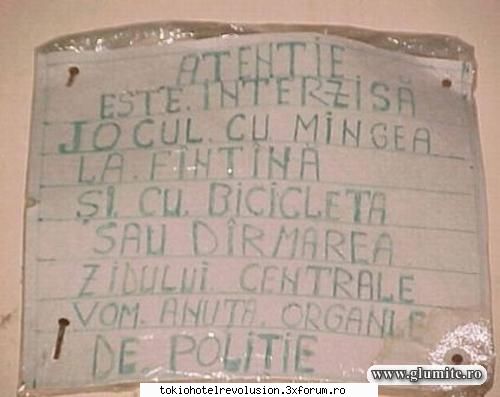 ATENTIE
ESTE. INTERZISĂ
JOCUL. CU MINGEA
LA. FINTINA
ȘI. CU. BICICLETA
SAU DÎRMAREA
ZIDULUI. CENTRALE
VOM. ANUTA. ORGANLE
DE. POLITIE
www.glumite.ro
tokiohotelrevolusion.3xforum.ro